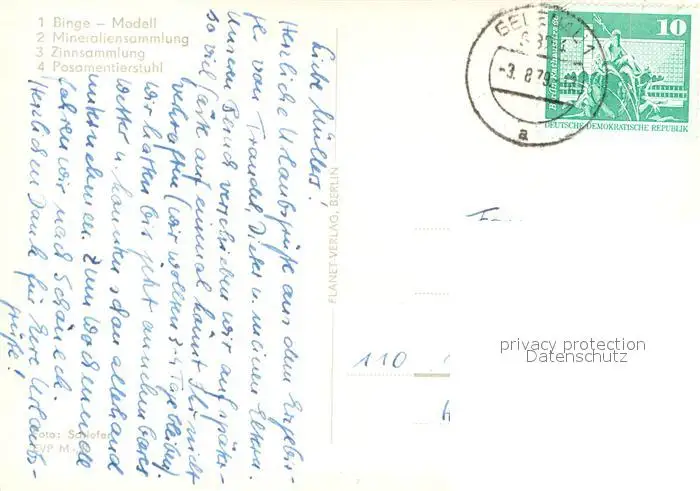 1 Binge – Modell
2 Mineraliensammlung
3 Zinnsammlung
4 Posamentierstuhl
Liebe Müllers!
Herzliche Urlaubsgrüße aus dem Erzgebir-
ge von Traudel, Dieter u. meinen Eltern.
Unseren Besuch verschieben wir auf später –
so viel Gäste auf einmal könnt Ihr nicht
verkraften (wir wollten 3-4 Tage bleiben).
Wir hatten bis jetzt annehmbares
Wetter u. konnten schon allerhand
unternehmen. Zum Wochenende
fahren wir nach Schöneck.
Herzlichen Dank für Eure Urlaubs-
grüße!
Foto: Schiefer
PLANET-VERLAG, BERLIN
GEYER 1
-3. 8. 79
a
Berlin, Rathausstraße
10
DEUTSCHE DEMOKRATISCHE REPUBLIK
110
privacy protection
Datenschutz